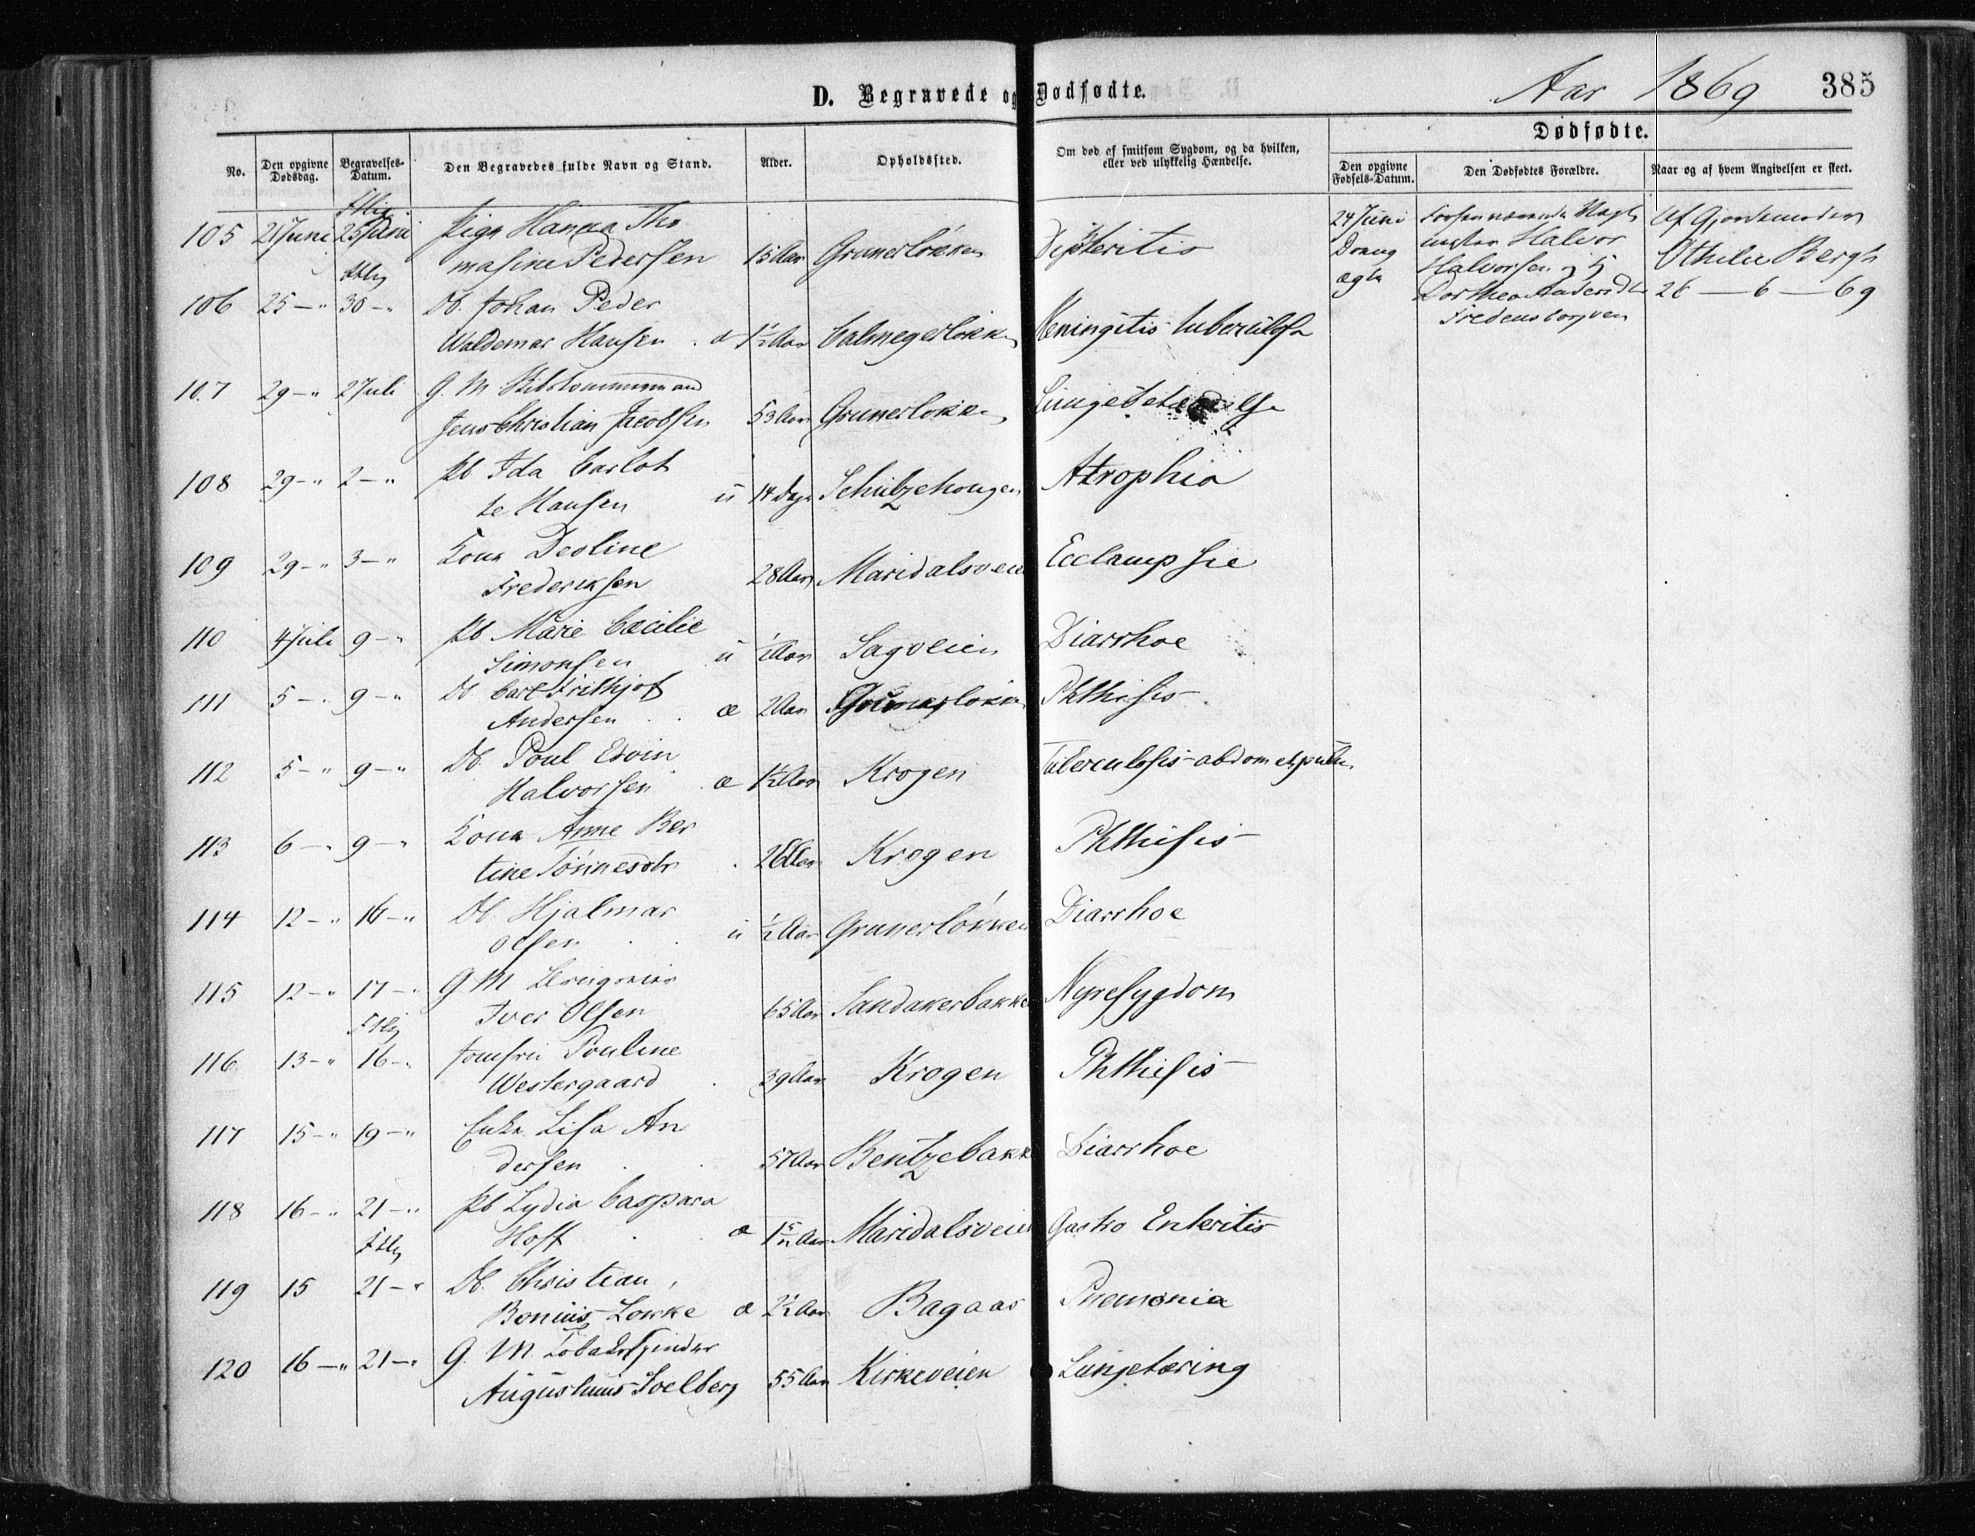 D. Begravede og Dødfødte.
Aar 1869
385
Dødfødte.
No.
Den opgivne Dødsdag.
Begravelses-Datum.
Den Begravedes fulde Navn og Stand.
Alder.
Opholdssted.
Om død af smitsom Sygdom, og da hvilken, eller ved ulykkelig Hændelse.
Den opgivne Fødsels-Datum.
Den Dødfødtes Forældre.
Naar og af hvem Angivelsen er skeet.
105 21 Juni 25 Juni Pige Hanna Tho
masine Pedersen 15 Aar Grunerløkken Dipteritis
24 Juni
Dreng
ægte
Halvor
Halvorsen og
Af Gjordemoder
Othilie Bergh
26 — 6 — 69
106 25 — " 30 — " Db. Johan Peder
Waldemar Hansen . æ 1½ Aar Calmeyerløkken Meningitis tuberculosa
107 29 — " 2 Juli G. M.
Jens Christian Jacobsen 53 Aar Grunerløkken Lungebetændelse
108 29 — " 2 — " Pb Ida Carlot
te Hansen u 14 Dage Schultzehougen Atrophia
109 29 — " 3 — " Kone Deoline
Frederiksen 28 Aar Maridalsveien Ecclampsie
110 4 Juli 9 — " Pb. Marie Cæcilie
Simonsen u ½ Aar Sagveien Diarrhoe
111 5 — " 9 — " Db Carl Frithjof
Andersen . . æ 2 Aar Grunerløkken Phthisis
112 5 — " 9 — " Db. Poul Edvin
Halvorsen . æ 1½ Aar Krogen Tuberculosis abdom et pulm
113 6 — " 9 — " Kone Anne Ber
tine Tönnesdtr . 26 Aar Krogen Phthisis
114 12 — " 16 — " Db. Hjalmar
Olsen . . u ½ Aar Grunerløkken Diarrhoe
115 12 — " 17 — " G M
Iver Olsen 65 Aar Sandakerbakken Nyresygdom
116 13 — " 16 — " Jomfru Pouline
Westergaard . 39 Aar Krogen Phthisis
117 15 — " 19 — " Enke Lisa An
dersen . . 57 Aar Bentzebakken Diarrhoe
118 16 — " 21 — " Pb Lydia Caspara
Hoff . . æ Aar Maridalsveien Gastro Enteritis
119 15 21 — " Db. Christian
Lokke æ 2½ Aar Bagaas Pnemonia
120 16 — " 21 — " G. M.
Augustinus Soelberg 55 Aar Kirkeveien Lungetæring